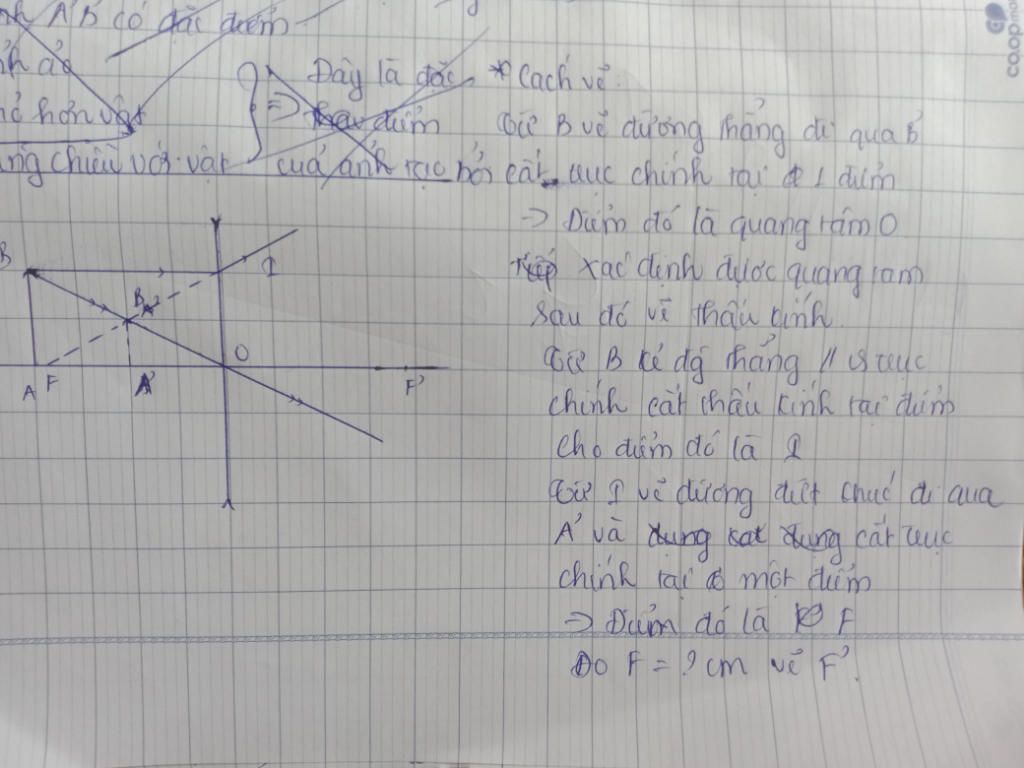 ảnh A'B' có đặc điểm
ảnh ảo
nhỏ hơn vật
cùng chiều với vật
Đây là đặc
=> điểm
của ảnh tạo bởi
* Cách vẽ:
Từ B vẽ đường thẳng đi qua B'
cắt trục chính tại 1 điểm
=> Điểm đó là quang tâm O
xác định được quang tâm
sau đó vẽ thấu kính.
Từ B kẻ đg thẳng // vs trục
chính cắt thấu kính tại điểm
cho điểm đó là I
Từ I vẽ đường đứt chuế đi qua
A' và cắt trục
chính tại một điểm
=> Điểm đó là F
Đo F = ? cm vẽ F'.
B
I
B'
O
A
F
A'
F'
co.opmart